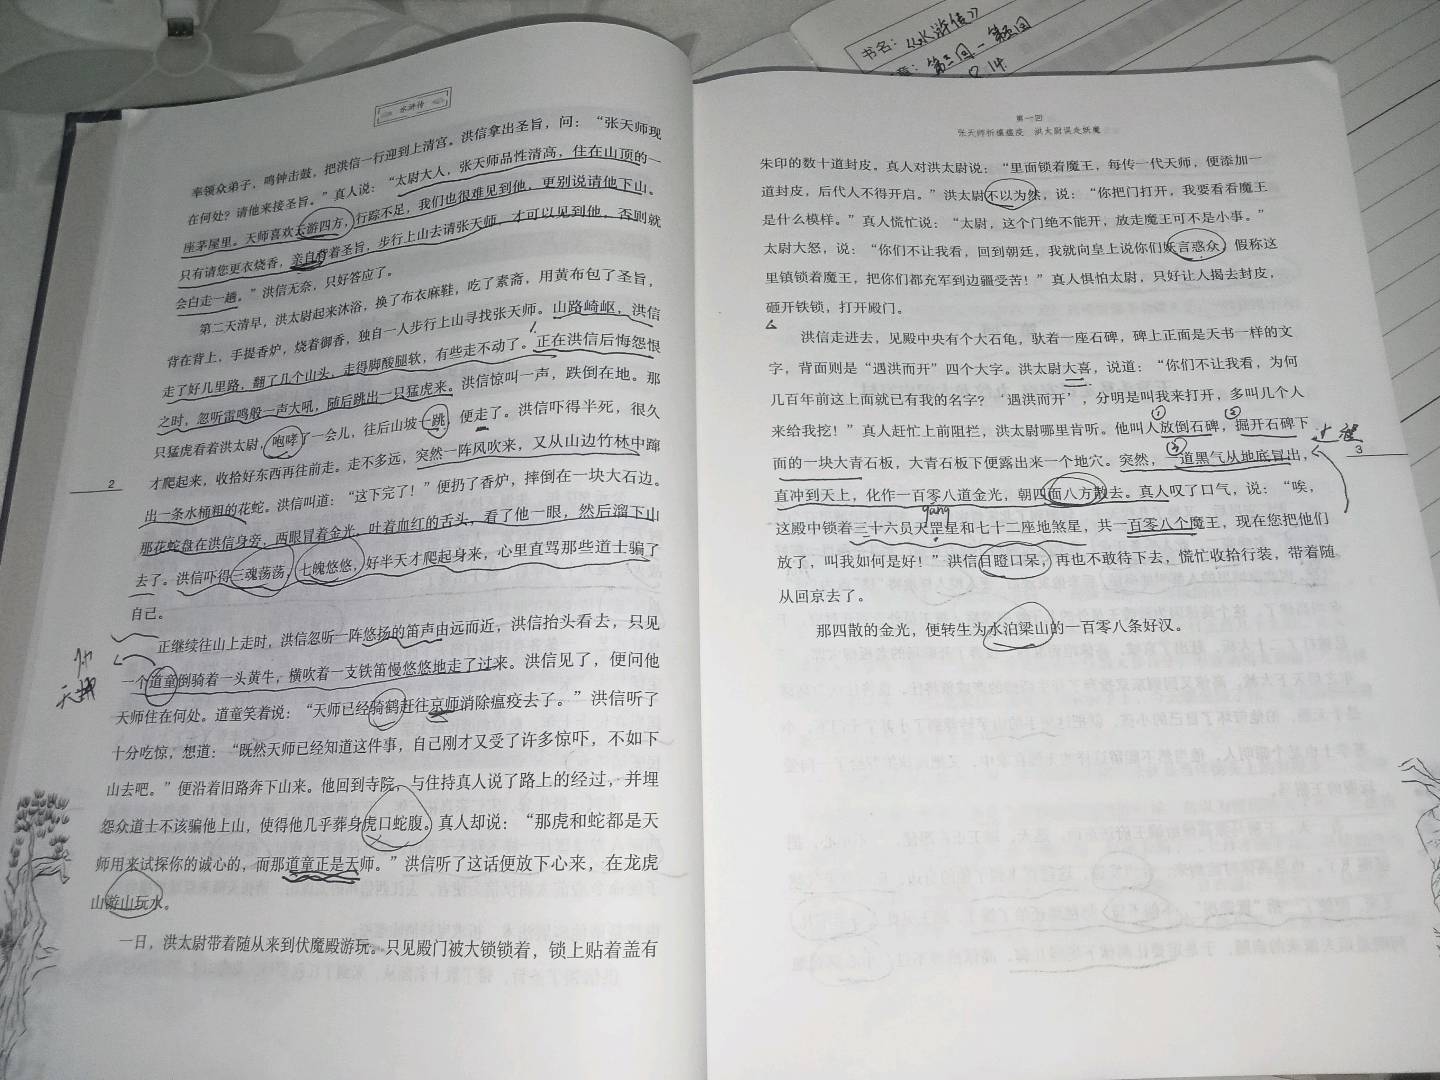 水浒传
率领众弟子，鸣钟击鼓，把洪信一行迎到上清宫。洪信拿出圣旨，问：“张天师现
在何处？请他来接圣旨。”真人说：“太尉大人，张天师品性清高，住在山顶的一
座茅屋里。天师喜欢云游四方，行踪不足，我们也很难见到他，更别说请他下山。
只有请您更衣烧香，亲自背着圣旨，步行上山去请张天师，才可以见到他，否则就
会白走一趟。”洪信无奈，只好答应了。
第二天清早，洪太尉起来沐浴，换了布衣麻鞋，吃了素斋，用黄布包了圣旨，
背在背上，手提香炉，烧着御香，独自一人步行上山寻找张天师。山路崎岖，洪信
走了好几里路，翻了几个山头，走得脚酸腿软，有些走不动了。正在洪信后悔怨恨
之时，忽听雷鸣般一声大吼，随后跳出一只猛虎来。洪信惊叫一声，跌倒在地。那
只猛虎看着洪太尉，咆哮了一会儿，往后山坡一跳，便走了。洪信吓得半死，很久
才爬起来，收拾好东西再往前走。走不多远，突然一阵风吹来，又从山边竹林中蹿
出一条水桶粗的花蛇。洪信叫道：“这下完了！”便扔了香炉，摔倒在一块大石边。
那花蛇盘在洪信身旁，两眼冒着金光，吐着血红的舌头，看了他一眼，然后溜下山
去了。洪信吓得三魂荡荡，七魄悠悠，好半天才爬起身来，心里直骂那些道士骗了
自己。
正继续往山上走时，洪信忽听一阵悠扬的笛声由远而近，洪信抬头看去，只见
一个道童倒骑着一头黄牛，横吹着一支铁笛慢悠悠地走了过来。洪信见了，便问他
天师住在何处。道童笑着说：“天师已经骑鹤赶往京师消除瘟疫去了。”洪信听了
十分吃惊，想道：“既然天师已经知道这件事，自己刚才又受了许多惊吓，不如下
山去吧。”便沿着旧路奔下山来。他回到寺院，与住持真人说了路上的经过，并埋
怨众道士不该骗他上山，使得他几乎葬身虎口蛇腹。真人却说：“那虎和蛇都是天
师用来试探你的诚心的，而那道童正是天师。”洪信听了这话便放下心来，在龙虎
山游山玩水。
一日，洪太尉带着随从来到伏魔殿游玩。只见殿门被大锁锁着，锁上贴着盖有
2
书名：《水浒传》
第一回
张天师祈禳瘟疫 洪太尉误走妖魔
朱印的数十道封皮。真人对洪太尉说：“里面锁着魔王，每传一代天师，便添加一
道封皮，后代人不得开启。”洪太尉不以为然，说：“你把门打开，我要看看魔王
是什么模样。”真人慌忙说：“太尉，这个门绝不能开，放走魔王可不是小事。”
太尉大怒，说：“你们不让我看，回到朝廷，我就向皇上说你们妖言惑众，假称这
里镇锁着魔王，把你们都充军到边疆受苦！”真人惧怕太尉，只好让人揭去封皮，
砸开铁锁，打开殿门。
洪信走进去，见殿中央有个大石龟，驮着一座石碑，碑上正面是天书一样的文
字，背面则是“遇洪而开”四个大字。洪太尉大喜，说道：“你们不让我看，为何
几百年前这上面就已有我的名字？‘遇洪而开’，分明是叫我来打开，多叫几个人
来给我挖！”真人赶忙上前阻拦，洪太尉哪里肯听。他叫人放倒石碑，掘开石碑下
面的一块大青石板，大青石板下便露出来一个地穴。突然，一道黑气从地底冒出，
直冲到天上，化作一百零八道金光，朝四面八方散去。真人叹了口气，说：“唉，
gāng
这殿中锁着三十六员天罡星和七十二座地煞星，共一百零八个魔王，现在您把他们
放了，叫我如何是好！”洪信目瞪口呆，再也不敢待下去，慌忙收拾行装，带着随
从回京去了。
那四散的金光，便转生为水泊梁山的一百零八条好汉。
3